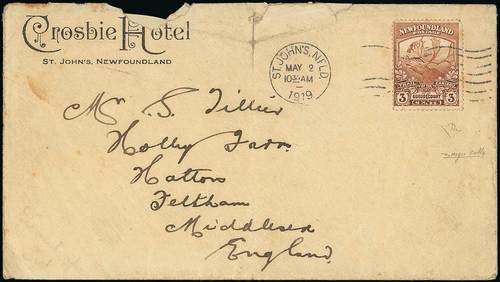 Crosbie Hotel
ST. JOHN'S, NEWFOUNDLAND
ST. JOHN'S, NFLD.
MAY 2
10 30 AM
1919
NEWFOUNDLAND
3 3
CENTS
Mr. S. Tiller
Holly Farm
Hatton
Feltham
Middlesex
England.